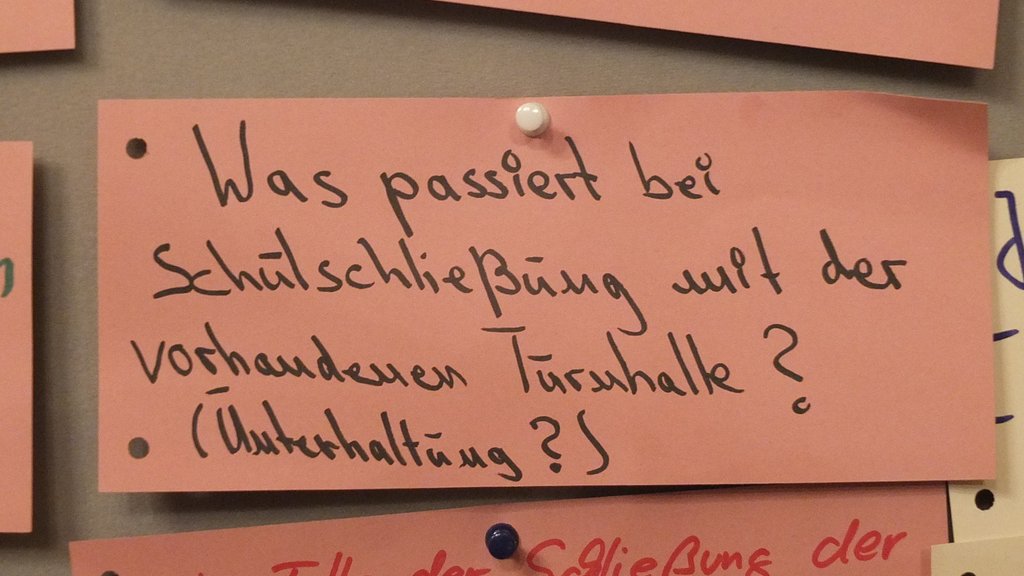 Was passiert bei
Schulschließung mit der
vorhandenen Turnhalle?
(Unterhaltung?)
der Schließung der